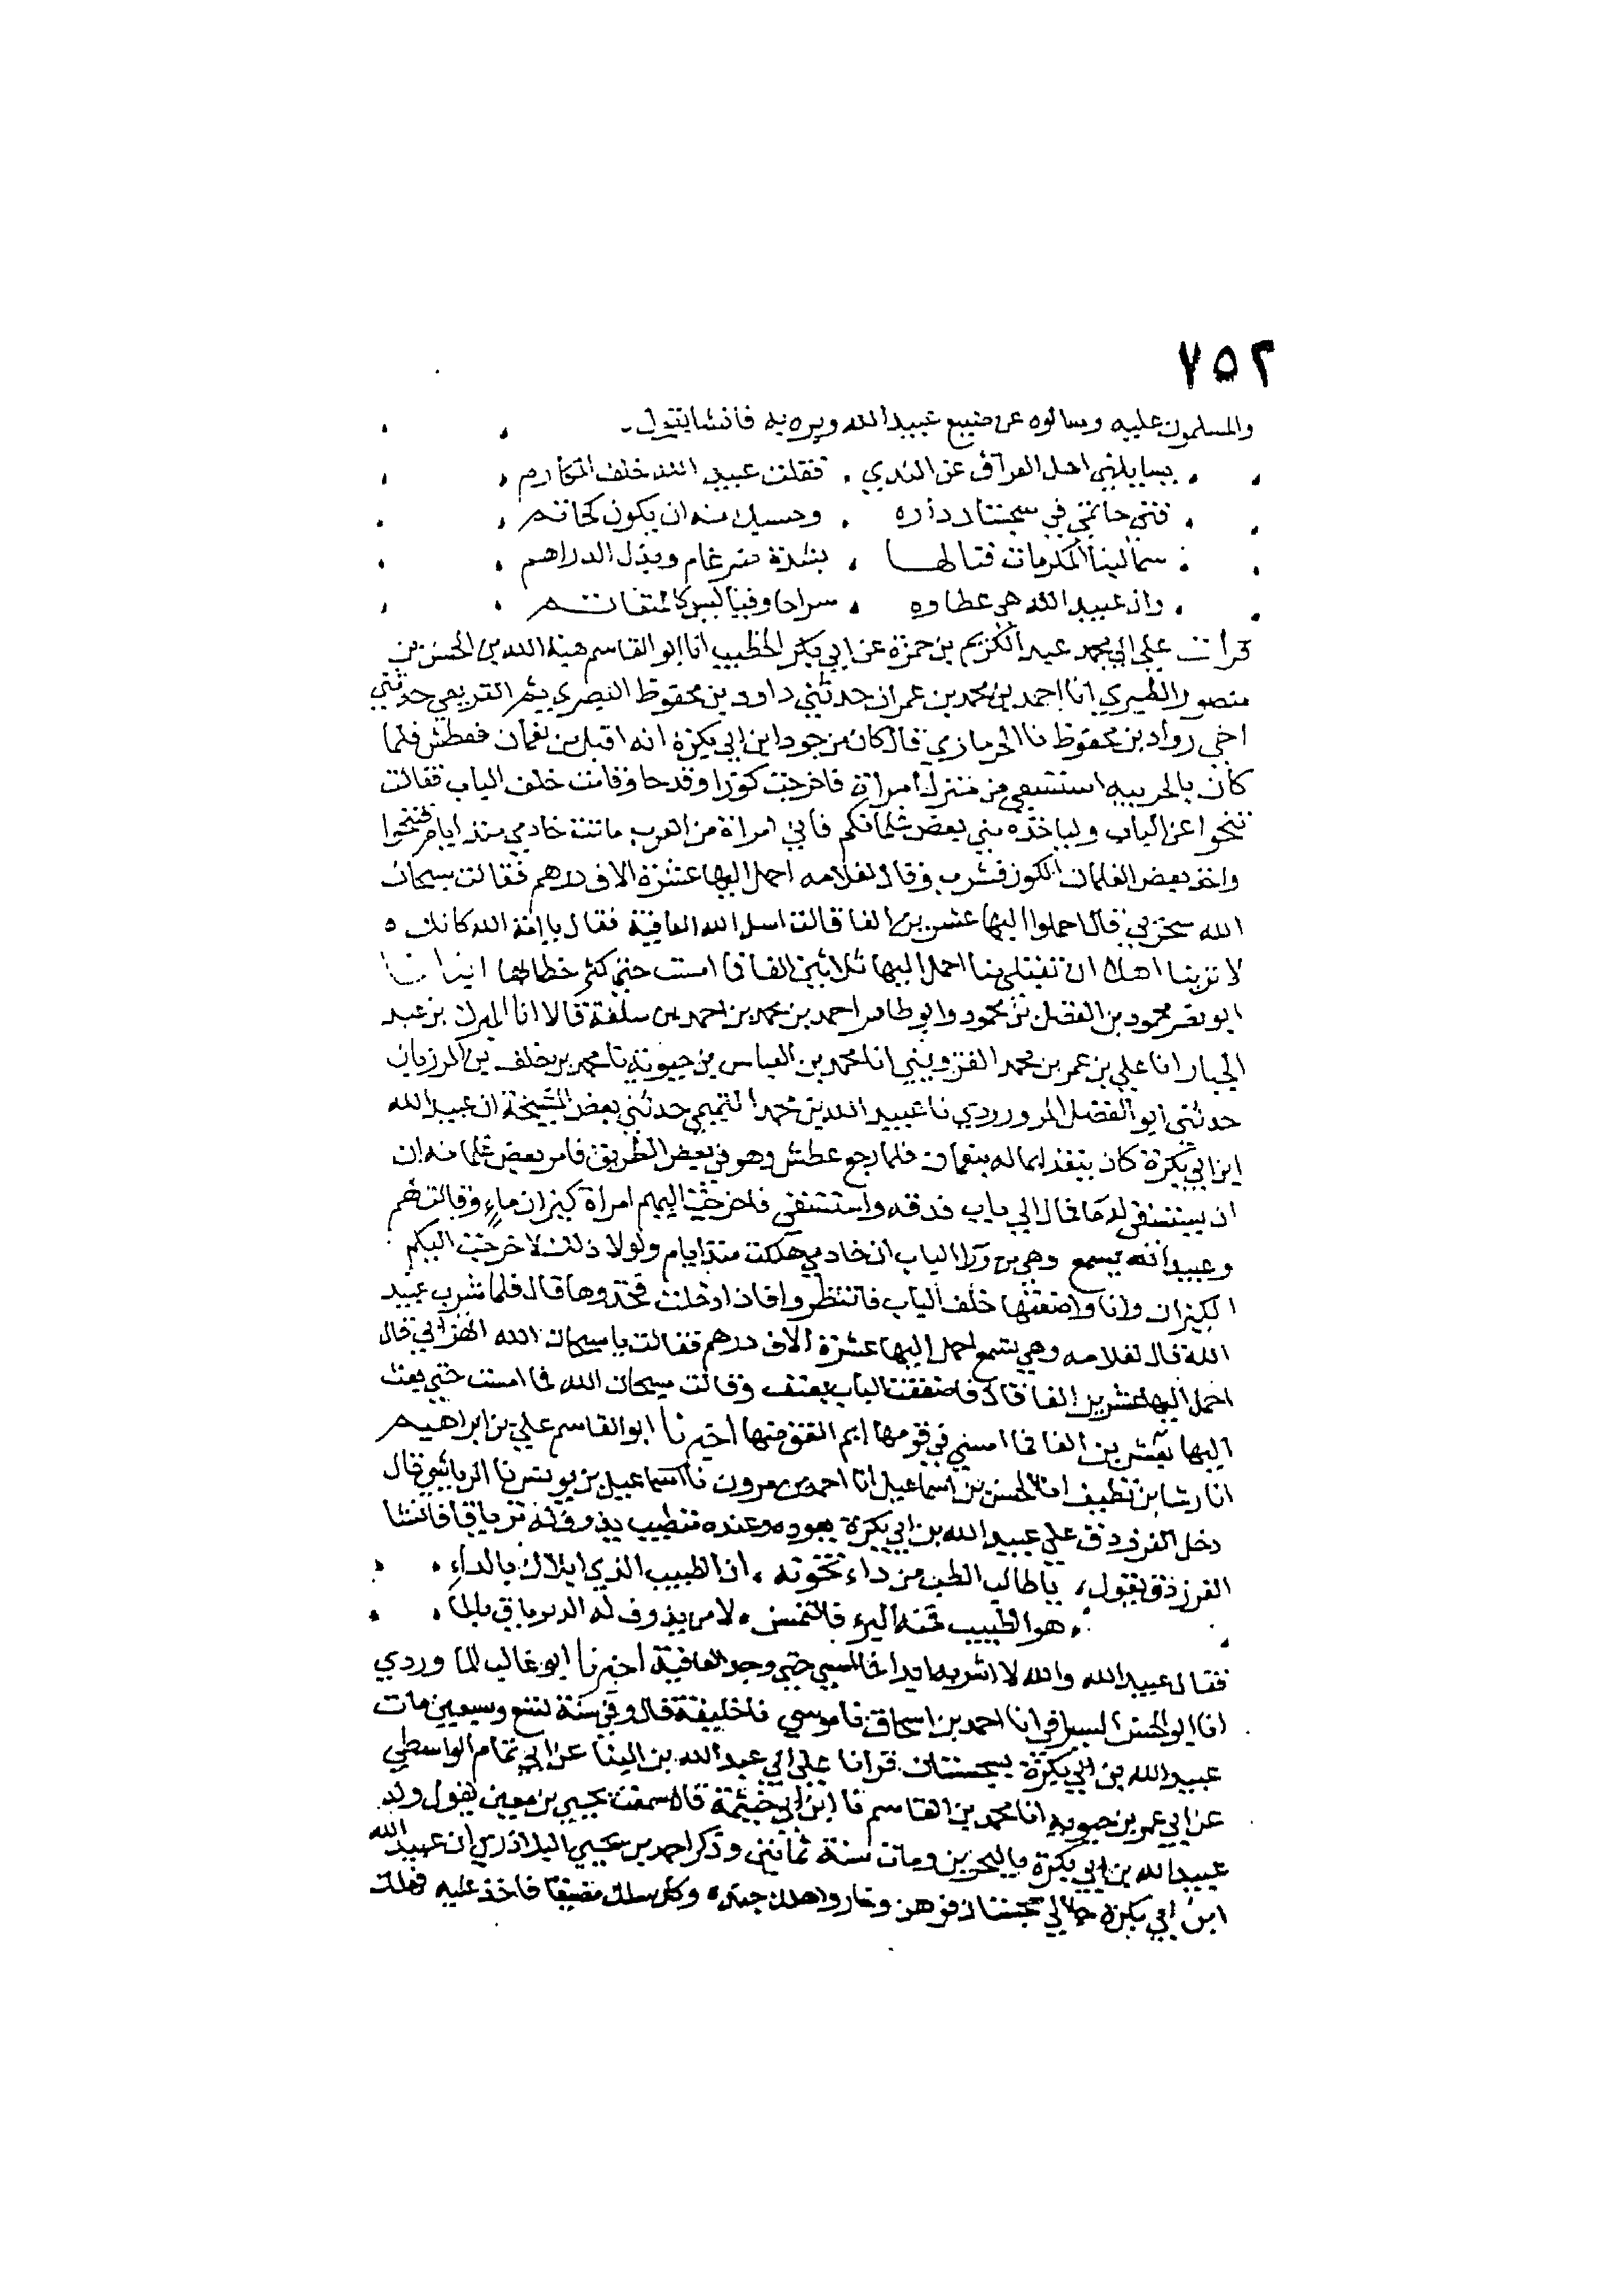 ٧٥٢
والمسلمون عليه وسالوه عن صنيع عبيد الله وبره به فانشا يقول
يسايلني اهل العراق عن الندي . فقلت عبيد الله خلف المكارم
فتي حاتمي في سجستان داره . وحسبك منه ان يكون كحاتم
سما لبنا المكرمات فنالها . بشدة ضرغام وبذل الدراهم
وان عبيد الله هني عطاوه . سراحا وفينا ليس كالمتفاتم
قرات علي ابي محمد عبد الكريم بن حمزة عن ابي بكر الخطيب انا ابو القاسم هبة الله بن الحسن بن
منصور الطبري انا احمد بن محمد بن عمران حدثني داود بن محفوظ النصري حدثني
اخي رواد بن محفوظ نا الحرمازي قال كان من جود ابن ابي بكرة انه اقبل من نعمان فعطش فلما
كان بالحريبه استسقي من منزل امراة فاخرجت كوزا وقدحا وقامت خلف الباب فقالت
تنحوا عن الباب ولياخذه مني بعض غلمانكم فاني امراة من العرب ماتت خادمي منذ ايام فتنحوا
واخذ بعض الغلمان الكوز فشرب وقال لغلامه احمل اليها عشرة الاف درهم فقالت سبحان
الله سخر بي قال احملوا اليها عشرين الفا قالت اسل الله العافية فقال يا امة الله كانك
لا ترينا اهلا ان تقبلي منا احمل اليها ثلاثين الفا فما امست حتي كثر خطابها انبانا
ابو نصر محمود بن الفضل بن محمود وابو طاهر احمد بن محمد بن احمد بن سلفة قالا انا المبرك بن عبد
الجبار انا علي بن عمر بن محمد القزويني انا محمد بن العباس بن حيوية نا محمد بن خلف بن المرزبان
حدثني ابو الفضل المروروذي نا عبيد الله بن محمد التيمي حدثني بعض المشيخة ان عبيد الله
ابن ابي بكرة كان يتفقد امواله بنعمان فلما رجع عطش وهو في بعض الطريق فامر بعض غلمانه ان
ان يستسقي له ماء فمال الي باب فدقه واستسقي فاخرجت اليهم امراة كيزان ماء وقالت لهم
وعبيد الله يسمع وهي من ورا الباب ان خادمي هلكت منذ ايام ولولا ذلك لاخرجت اليكم
الكيزان وانا واضعتها خلف الباب فانتظروا فاذا دخلت فخذوها قال فلما شرب عبيد
الله قال لغلامه وهي تسمع احمل اليها عشرة الاف درهم فقالت يا سبحان الله اتهزا بي قال
احمل اليها عشرين الفا قال فاصفقت الباب بعنف وقالت سبحان الله فما امست حتي بعث
اليها بعشرين الفا فما امسي في قومها ايم القق منها اخبرنا ابو القاسم علي بن ابراهيم
انا رشا بن نظيف انا الحسن بن اسماعيل انا احمد بن مروان نا اسماعيل بن يونس نا الرياشي قال
دخل الفرزدق علي عبيد الله بن ابي بكرة يعوده وعنده متطبب يذوف له ترياقا فانشا
الفرزدق يقول . يا طالب الطب من داء تخوفه . ان الطبيب الذي ابلاك بالداء
هو الطبيب فمنه البرء فالتمس . لا من يذوف له الدرياق بالما
فقال عبيد الله والله لا اشربه ابدا فما امسي حتي وجد العافية اخبرنا ابو غالب الماوردي
انا ابو الحسن السيرافي انا احمد بن اسحاق نا موسي نا خليفة قال وفي سنة تسع وسبعين مات
عبيد الله بن ابي بكرة بسجستان قرانا علي ابي عبد الله بن البنا عن ابي تمام الواسطي
عن ابي عمر بن حيوية انا محمد بن القاسم نا ابن ابي خيثمة قال سمعت يحيي بن معين يقول ولد
عبيد الله بن ابي بكرة بالبحرين ومات سنة ثمانين وذكر احمد بن يحيي البلاذري ان عبيد الله
ابن ابي بكرة والي سجستان فوهن وخار واهلك جنده وكان سلك مضيقا فاخذ عليه فهلك